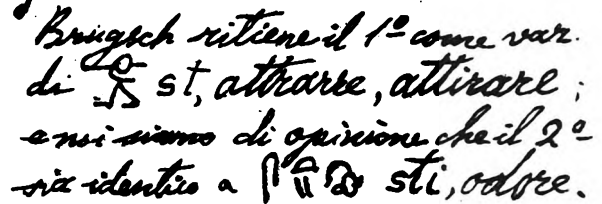 Brugsch ritiene il 1º come var.
di st, attrarre, attirare;
e noi siamo di opinione che il 2º
sia identico a sti, odore.